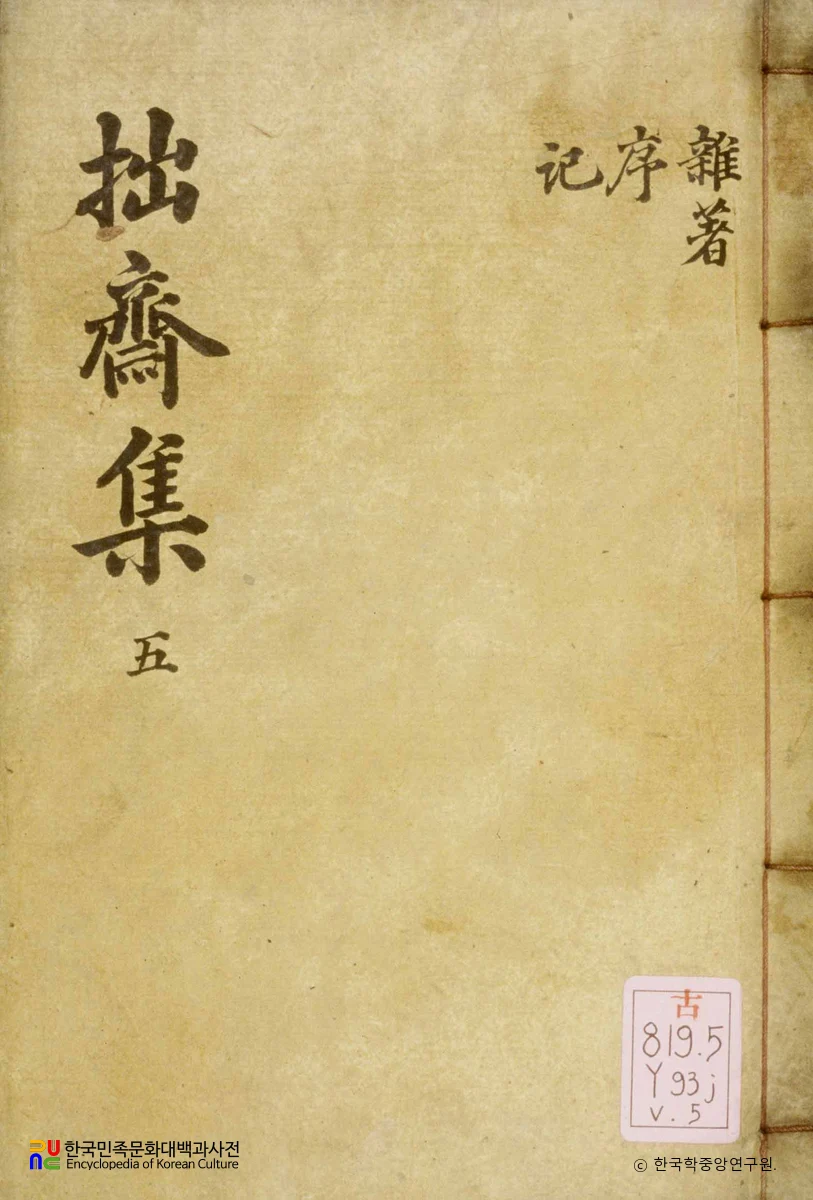 雜著
序
記
拙齋集 五
古
819.5
Y93j
v.5
한국민족문화대백과사전
Encyclopedia of Korean Culture
ⓒ 한국학중앙연구원.